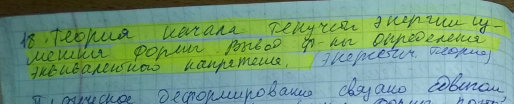 18. Теория начала текучести энергии из-
менения формы. Вывод ф-лы определения
эквивалентного напряжения. Энергетич. теория
деформирование связано